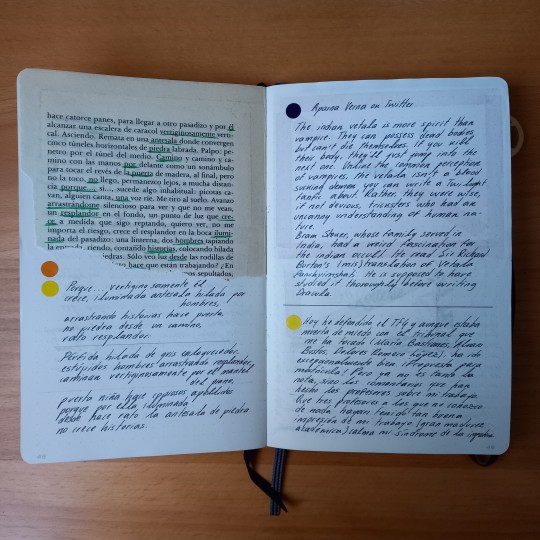 hace catorce panes, para llegar a otro pasadizo y por él
alcanzar una escalera de caracol vertiginosamente verti-
cal. Asciendo. Remata en una antesala donde convergen
cinco túneles horizontales de piedra labrada. Palpo: pe-
netro por el túnel del medio. Camino y camino y ca-
mino con las manos por delante como un sonámbulo
para tocar el revés de la puerta de madera, al final, pero
no la toco, no llego, permanezco lejos, a mucha distan-
cia porque... si..., sucede algo inhabitual: picotas ca-
van, alguien canta, una voz ríe. Me tiro al suelo. Avanzo
arrastrándome silencioso para ver y que no me vean,
un resplandor en el fondo, un punto de luz que cre-
ce a medida que sigo reptando, quiero ver, no me
importa el riesgo, crece el resplandor en la boca ilumi-
nada del pasadizo: una linterna, dos hombres tapiando
la entrada, riendo, contando historias, colocando hilada
piedras. Sólo veo luz desde las rodillas de
hace que están trabajando? ¿En
sepultados,
Porque... vertiginosamente él
crece, iluminada antesala hilada por
hombres,
arrastrando historias hace puerta,
no piedra desde un camino,
rato resplandor.
Pérfida hilada de gris
estúpidos hombres arrastrados resplandor
caminan vertiginosamente por el
del pano,
puerta niña que apellidos
porque por ella iluminada
desde hace rato la antesala de piedra
no crece historias.
Aparna Verma on Twitter
The indian vetala is more spirit than
vampire. They can possess dead bodies
but can't die themselves. If you kill
their body, they'll just jump into the
next one. Unlike the common perception
of vampires, the vetala isn't a blood
sucking demon you can write a Twilight
fanfic about. Rather, they were wise,
if not devious, tricksters who had an
uncanny understanding of human na-
ture.
Bram Stoker, whose family served in
India, had a weird fascination for
the indian occult. He read Sir Richard
Burton's (mis)translation of Vetala
Panchvimshati. He is supposed to have
studied it thoroughly before writing
Dracula.
Hoy he defendido el TFG y aunque estaba
muerta de miedo con el tribunal que
me ha tocado (María Bastianes, Álvaro
Bustos, Dolores Romero López), ha ido
excepcionalmente bien. ¡Propuesta para
matrícula! Pero ya no es tanto la
nota, sino los comentarios que han
hecho los profesores sobre mi trabajo.
Que tres profesores a los que no conozco
de nada hayan tenido tan buena
impresión de mi trabajo (gran madurez
académica) calma mi síndrome de la impostora.